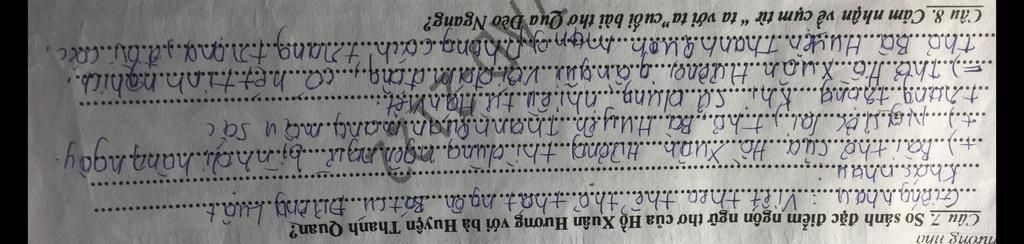 hương nhà
Câu 7. So sánh đặc điểm ngôn ngữ thơ của Hồ Xuân Hương với bà Huyện Thanh Quan?
Giống nhau : Viết theo thể thơ thất ngôn Bát cú Đường Luật
Khác nhau :
+) Bài thơ của Hồ Xuân Hương thì dùng ngôn ngữ bình dị hàng ngày.
+) ngược lại, thơ Bà Huyện Thanh Quan mang màu sắc
trang trọng khi sử dụng nhiều từ Hán Việt.
=) Thơ Hồ Xuân Hương gần gũi với dân dáng, có nét tinh nghịch,
thơ Bà Huyện Thanh Quan mang phong cách trang trọng, đài các.
Câu 8. Cảm nhận về cụm từ " ta với ta"cuối bài thơ Qua Đèo Ngang?